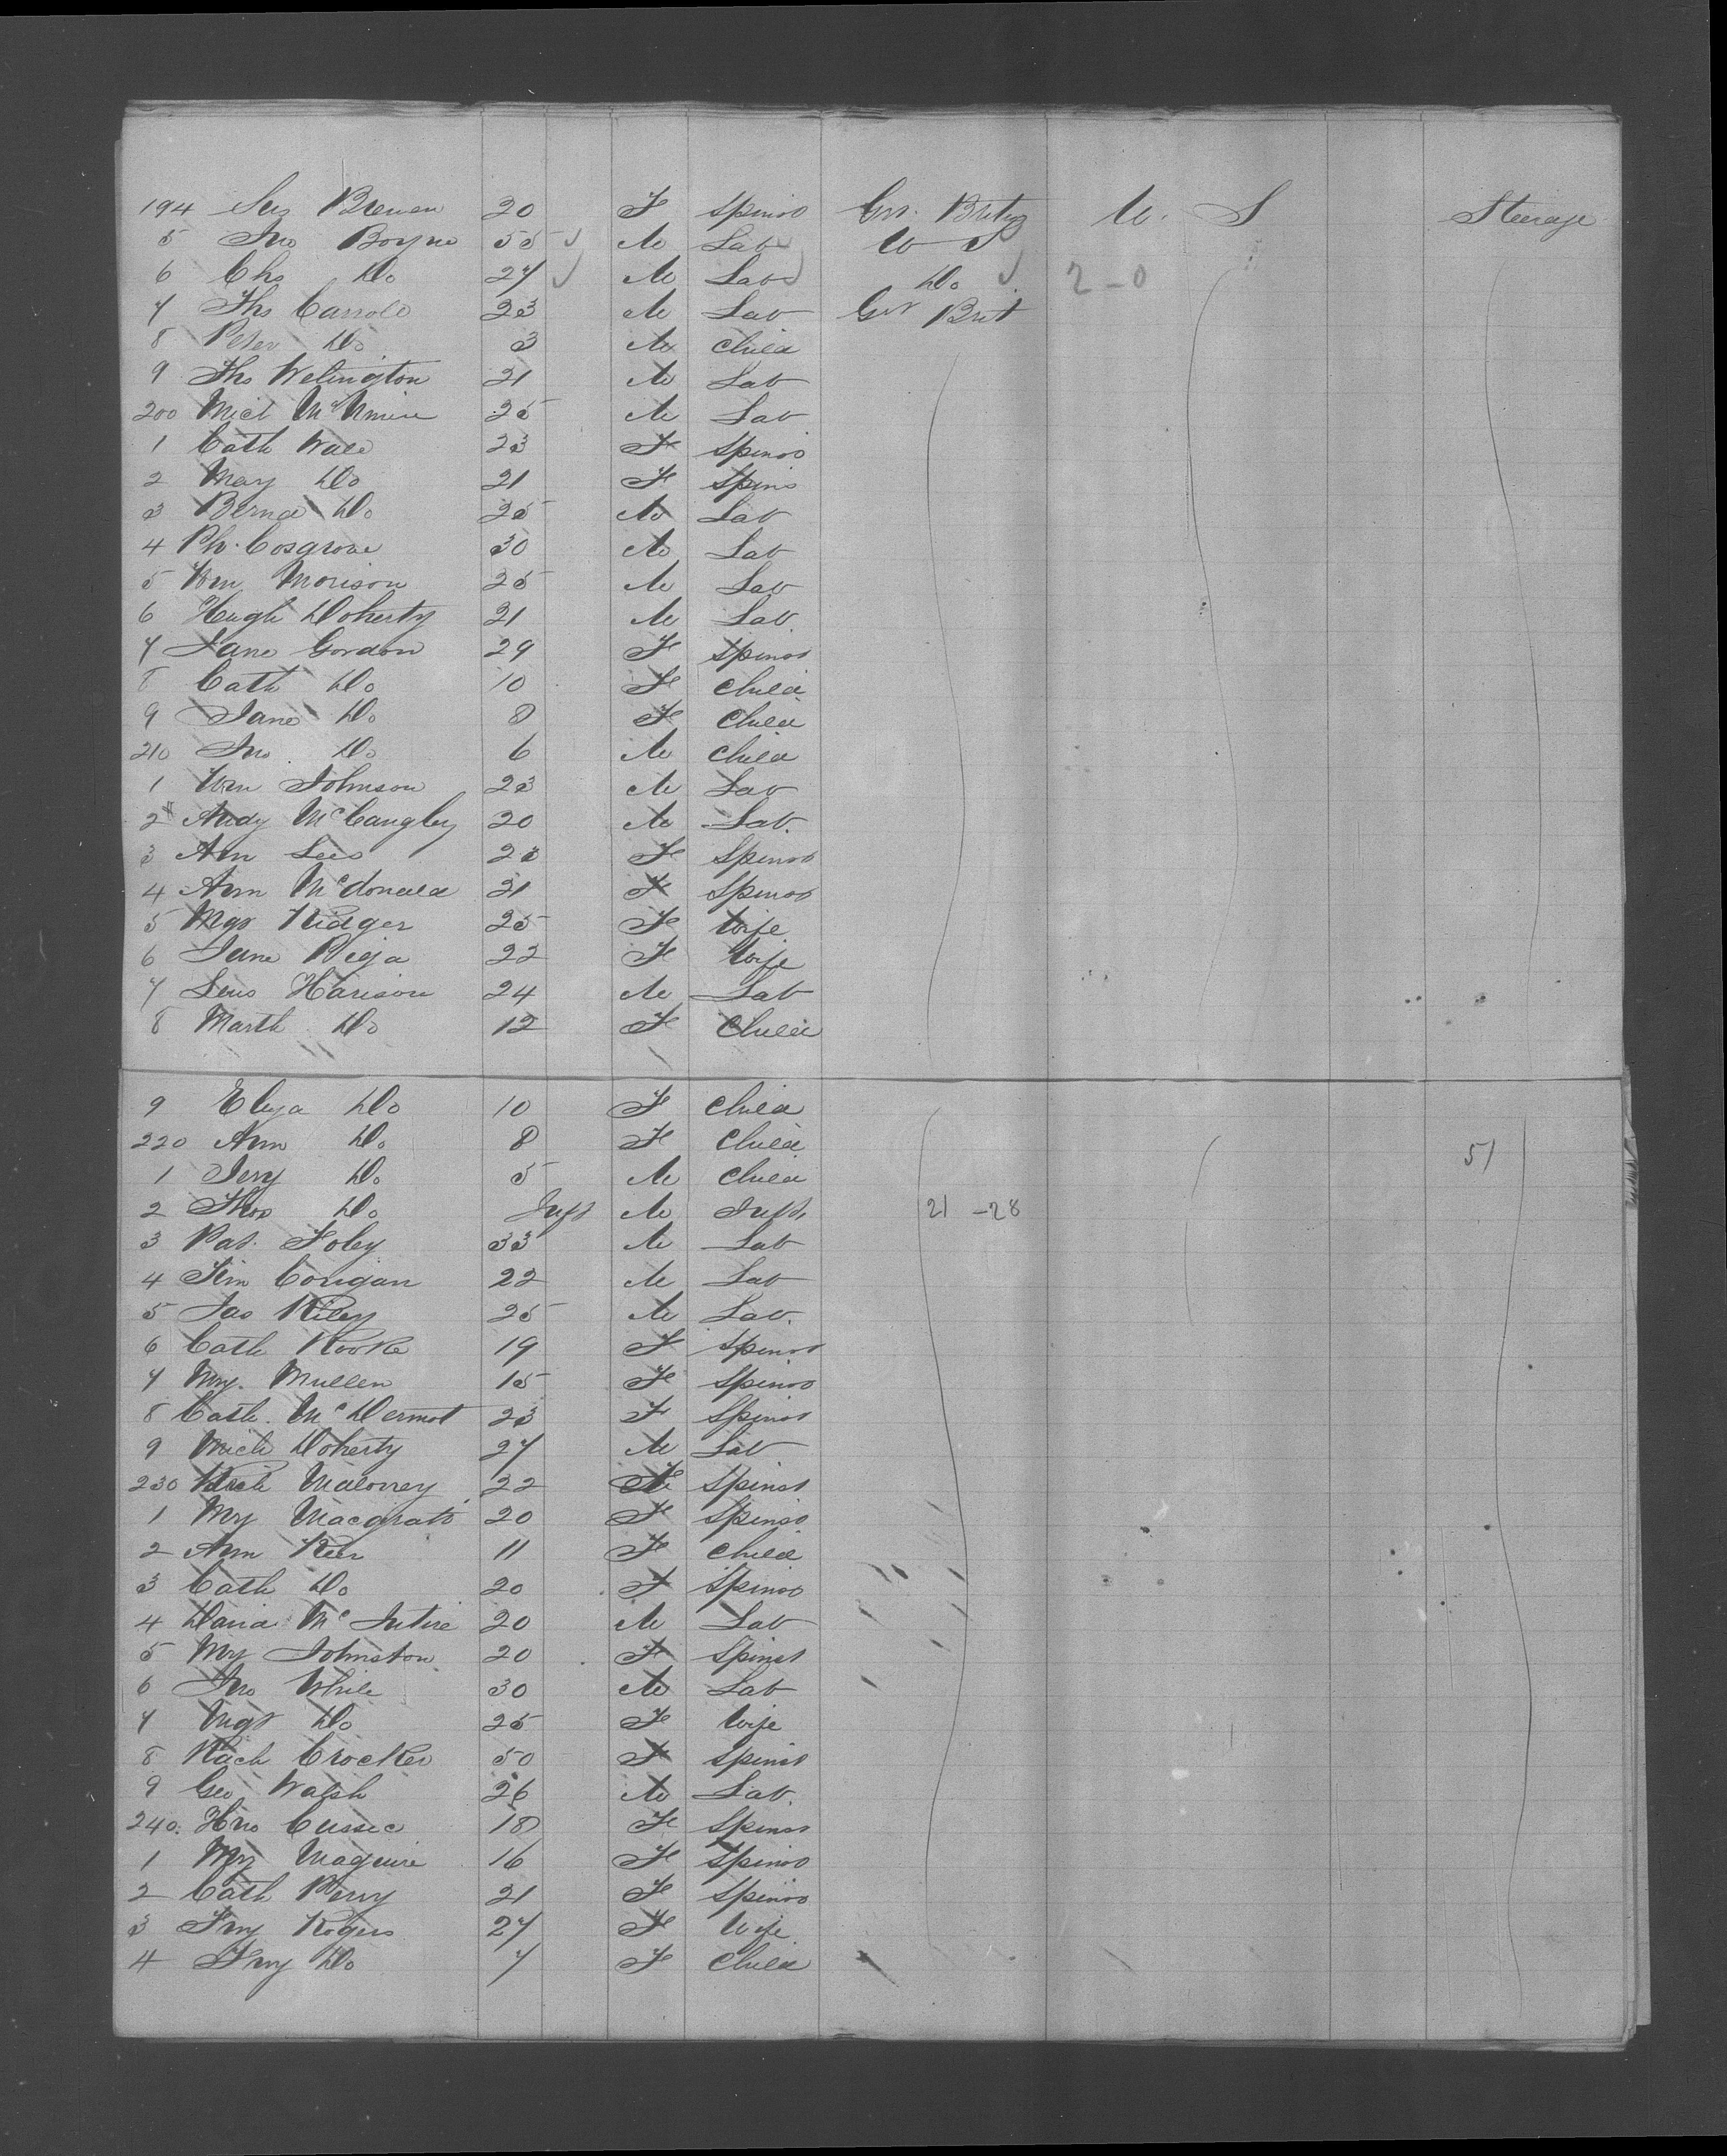 194 Brenen 20 F Spinst Grt. Britn U. S Steerage
5 Jno Boyne 55 M Lab U S
6 Chs Do 27 M Lab Do 2-0
7 Ths Carroll 23 M Lab Grt Brit
8 Peter Do 3 M Child
9 Ths Welington 21 M Lab
200 Micl 25 M Lab
1 Cath Wall 23 F Spinst
2 Mary Do 21 F Spins
3 Bernd Do 25 M Lab
4 Ph. Cosgrove 30 M Lab
5 Wm Morison 25 M Lab
6 Hugh Doherty 21 M Lab.
7 Jane Gordon 29 F Spinst
8 Cath Do 10 F Child
9 Jane Do 8 F Child
210 Jno. Do 6 M Child
1 Wm Johnson 23 M Lab
2 Andy McCangley 20 M Lab.
3 Ann Lees F Spinst
4 Ann Mcdonald 21 F Spinst
5 Mgt Ridger 25 F Wife
6 Jane 22 F Wife
7 Harison 24 M Lab
8 Marth Do 12 F Child
9 Eliza Do 10 F Child
220 Ann Do 8 F Child 51
1 Jery Do 5 M Child
2 Thos Do Inft M Inft 21 - 28
3 Pat. Foley 33 M Lab
4 Tim Corigan 22 M Lab
5 Jas Riley 25 M Lab.
6 Cath Rooke 19 F Spinst
7 My. Mullen 15 F Spinst
8 Cath. McDermot 23 F Spinst
9 Mich Doherty 27 M Lab
230 Maloney 22 F Spinst
1 My Macgrath 20 F Spinst
2 Ann Keer 11 F Child
3 Cath Do 20 F Spinst
4 David McIntire 20 M Lab
5 My Johnston 20 F Spinst
6 Jno While 30 M Lab
7 Mgt Do 25 F Wife
8 Rach Crocker 50 F Spinst
9 Geo Walsh 26 M Lab.
240. Cussec 18 F Spinst
1 My Maguire 16 F Spinst
2 Cath Perry 21 F Spinst
3 Fny Rogers 27 F Wife
4 Fny Do 7 F Child